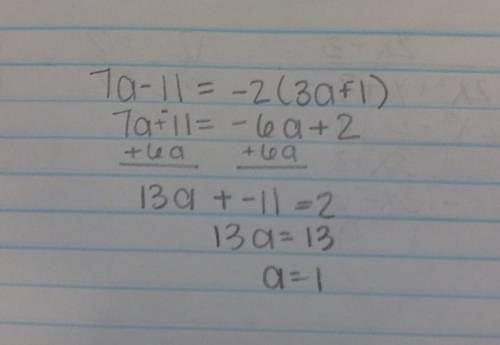 7a - 11 = -2(3a + -1)
7a + -11 = -6a + 2
+6a +6a
13a + -11 = 2
13a = 13
a = 1